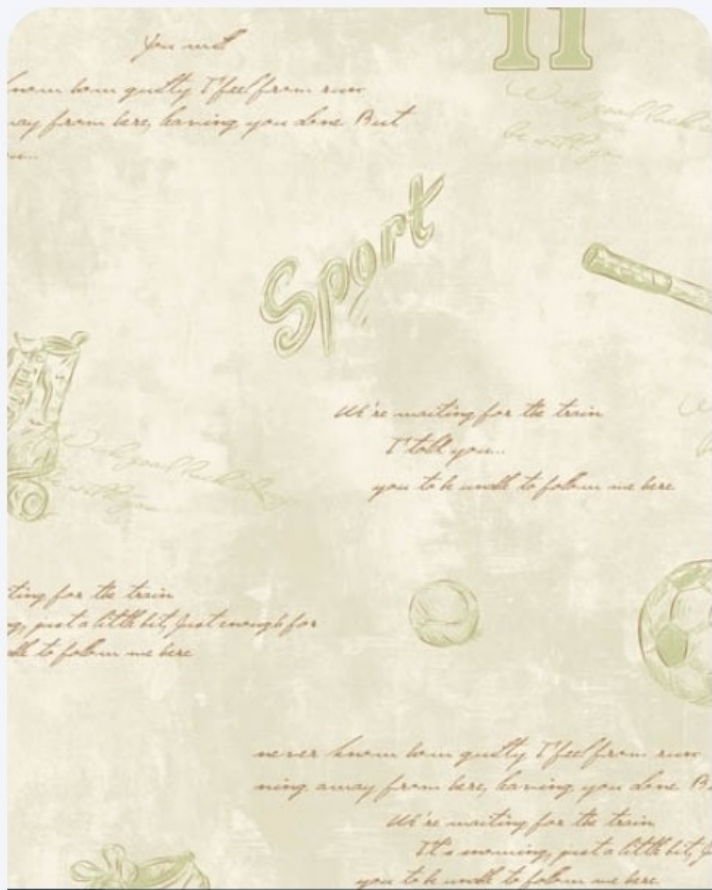 11
You will
know how guilty I feel from run
away from here, having you done But
Wish good luck
be with you
Sport
We're waiting for the train
I told you...
you to be unable to follow me here
Wish good luck
with you
ting for the train
just a little bit, just enough for
to follow me here
never know how guilty I feel from run
ning away from here, having you done
We're waiting for the train
It's morning, just a little bit,
you to be unable to follow me here